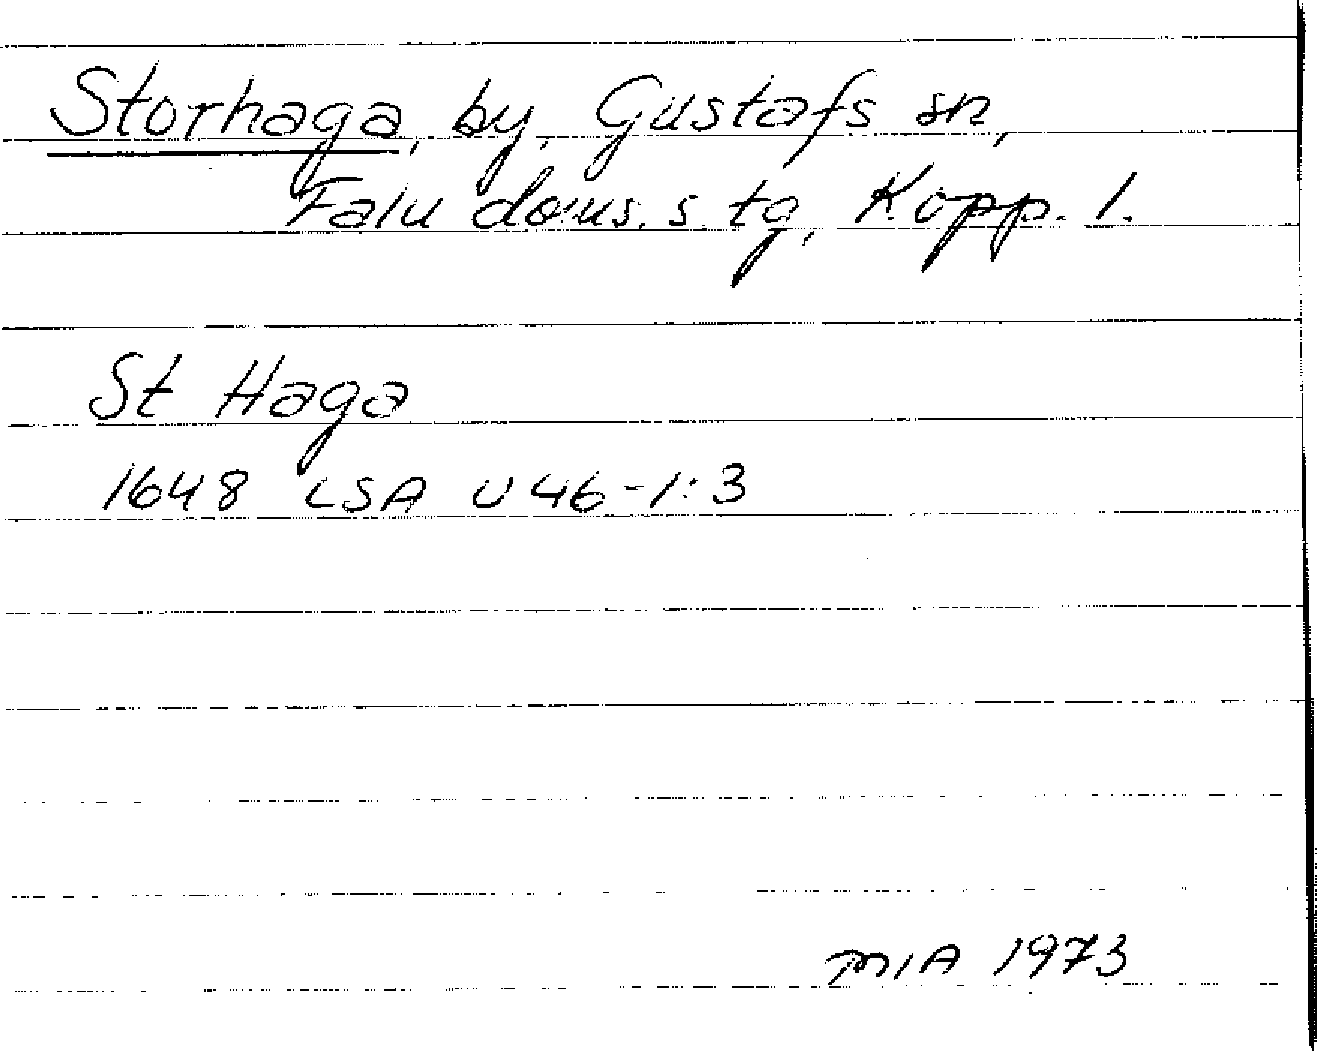 Storhaga, by, Gustafs sn,
Falu doms. s. tg, Kopp. l.
St Haga
1648 LSA U 46-1:3
MIA 1973